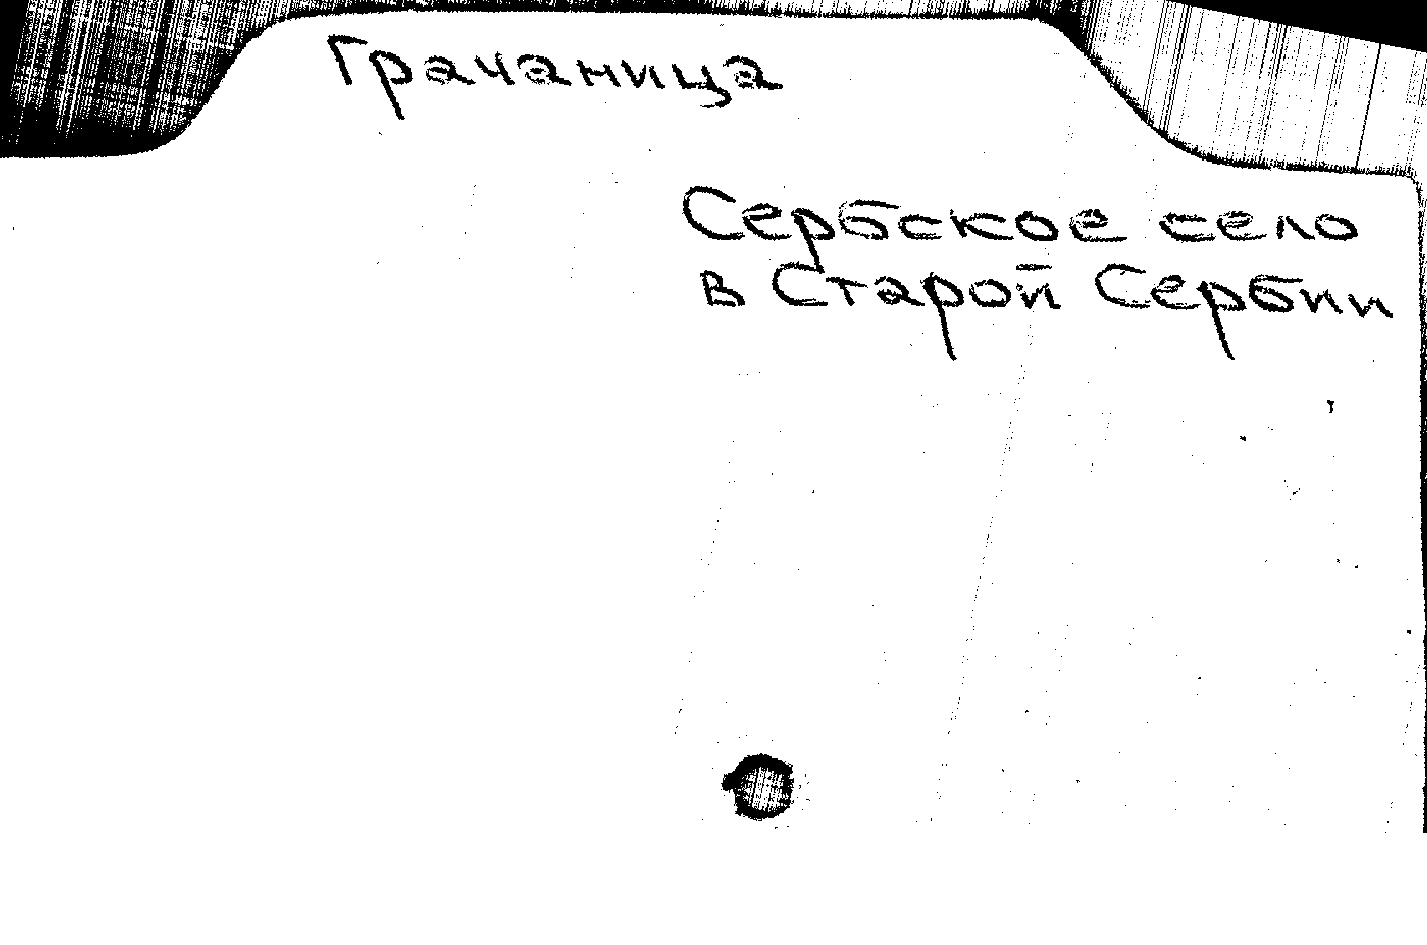 Грачаница
Сербское село
в Старой Сербии